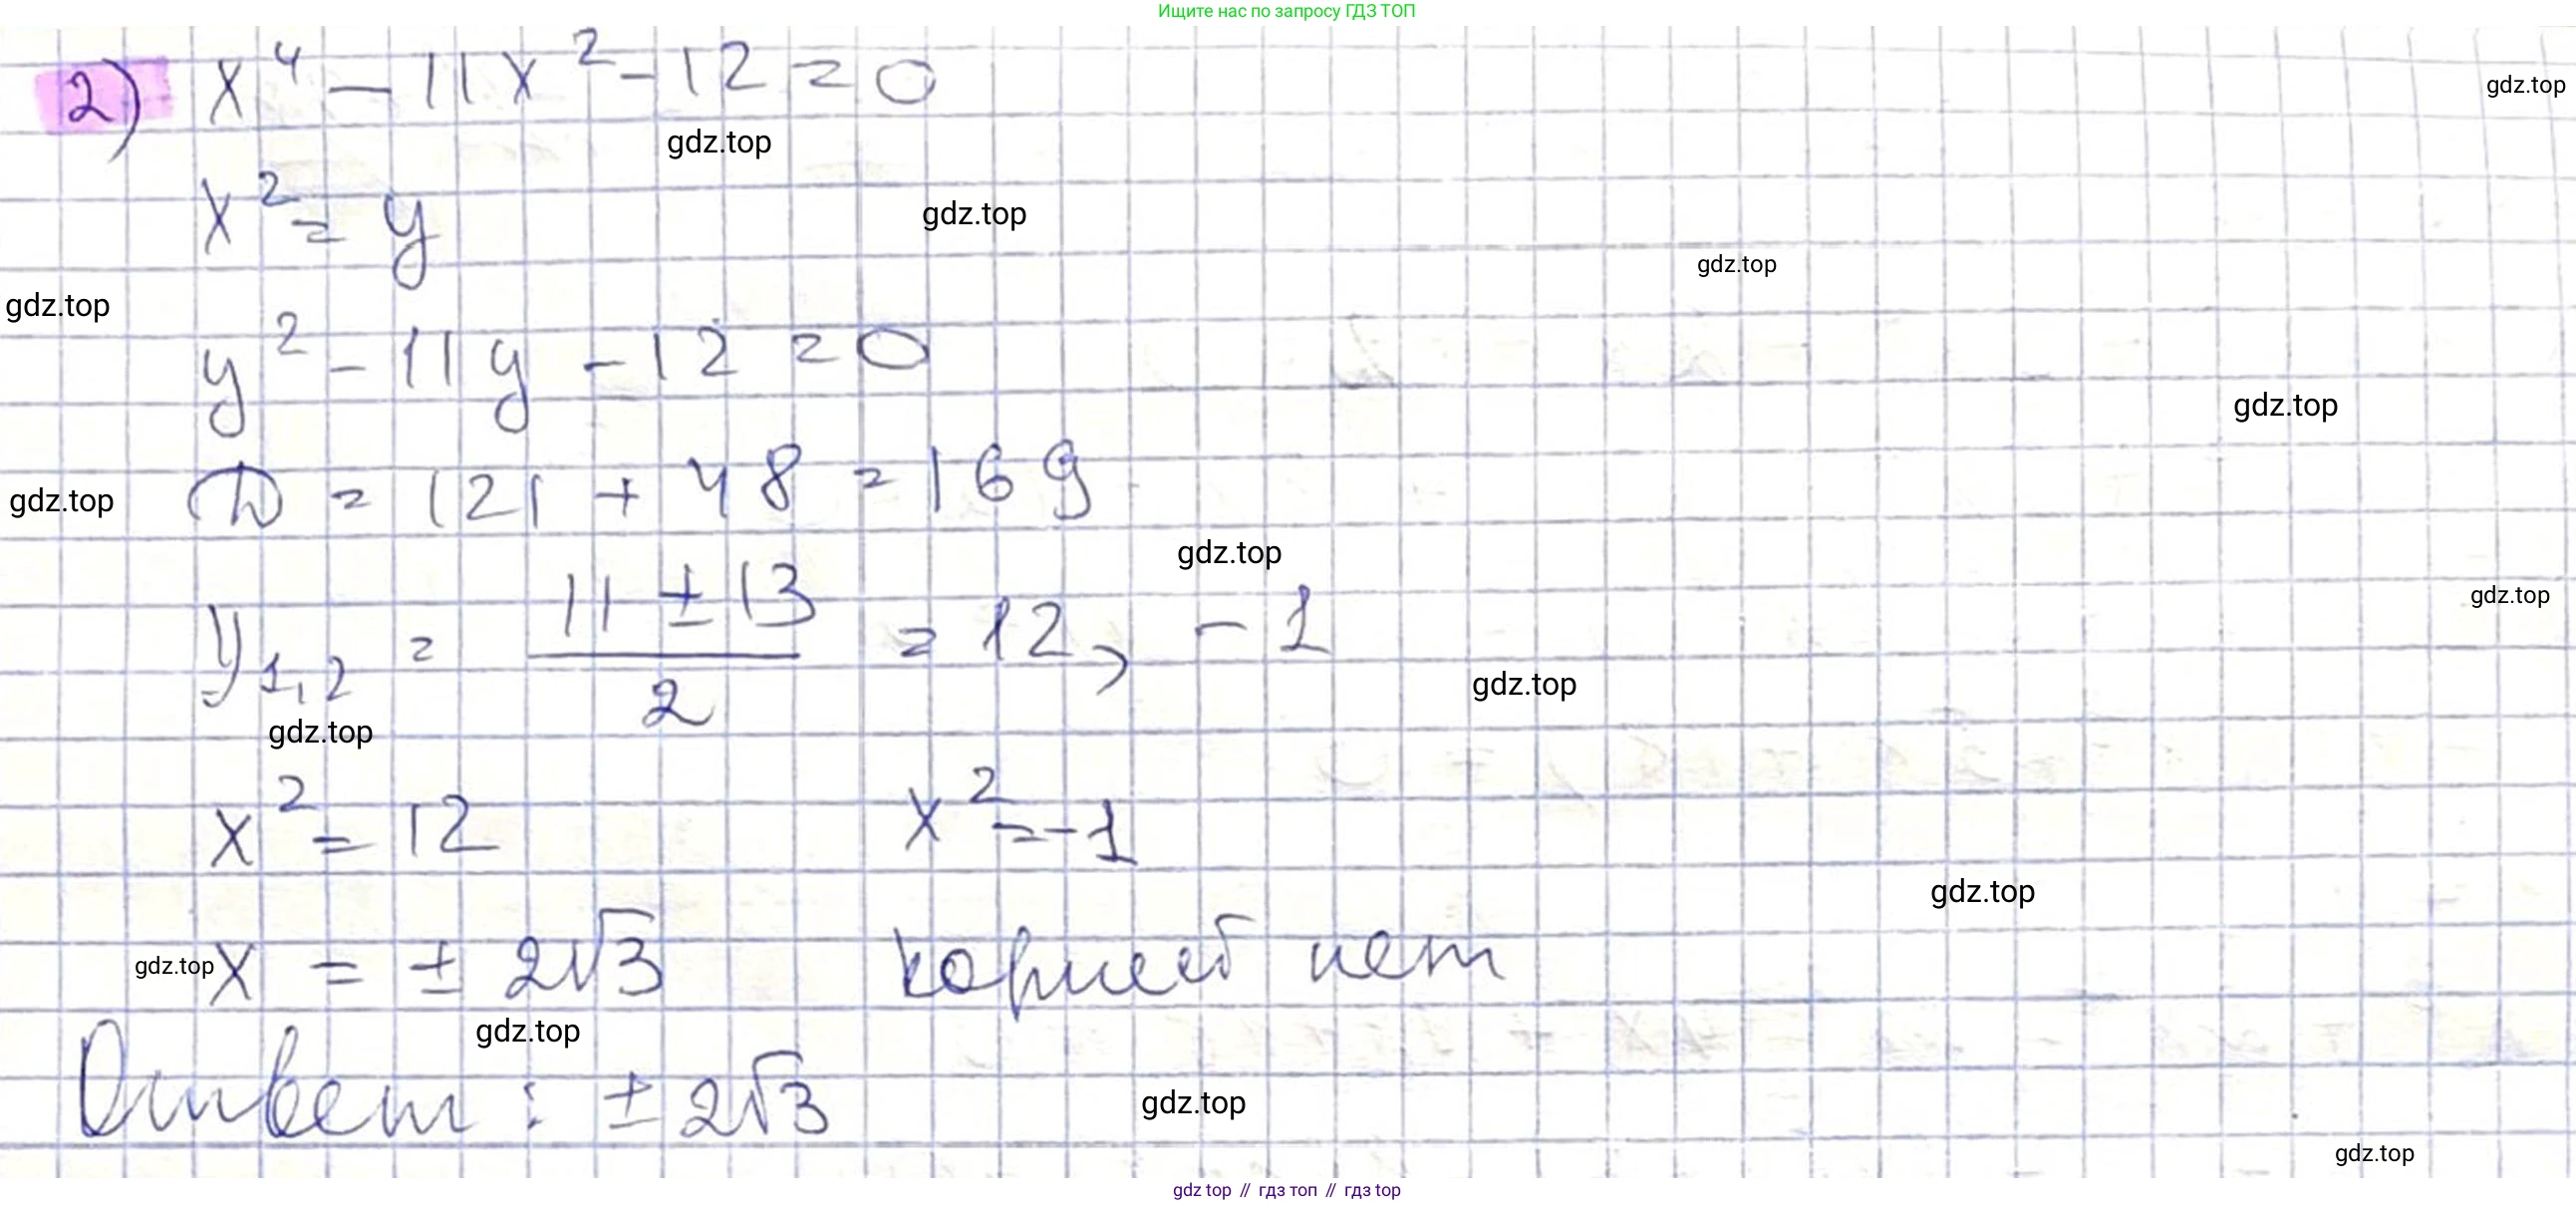 Ищите нас по запросу ГДЗ ТОП
2) x⁴ - 11x² - 12 = 0
gdz.top
gdz.top
x² = y
gdz.top
gdz.top
gdz.top
y² - 11y - 12 = 0
gdz.top
D = 121 + 48 = 169
gdz.top
gdz.top
gdz.top
y₁,₂ = (11 ± 13)/2 = 12, -1
gdz.top
gdz.top
x² = 12 x² = -1
gdz.top
x = ± 2√3 корней нет
gdz.top
gdz.top
Ответ: ± 2√3
gdz.top
gdz.top
gdz top // гдз топ // гдз top